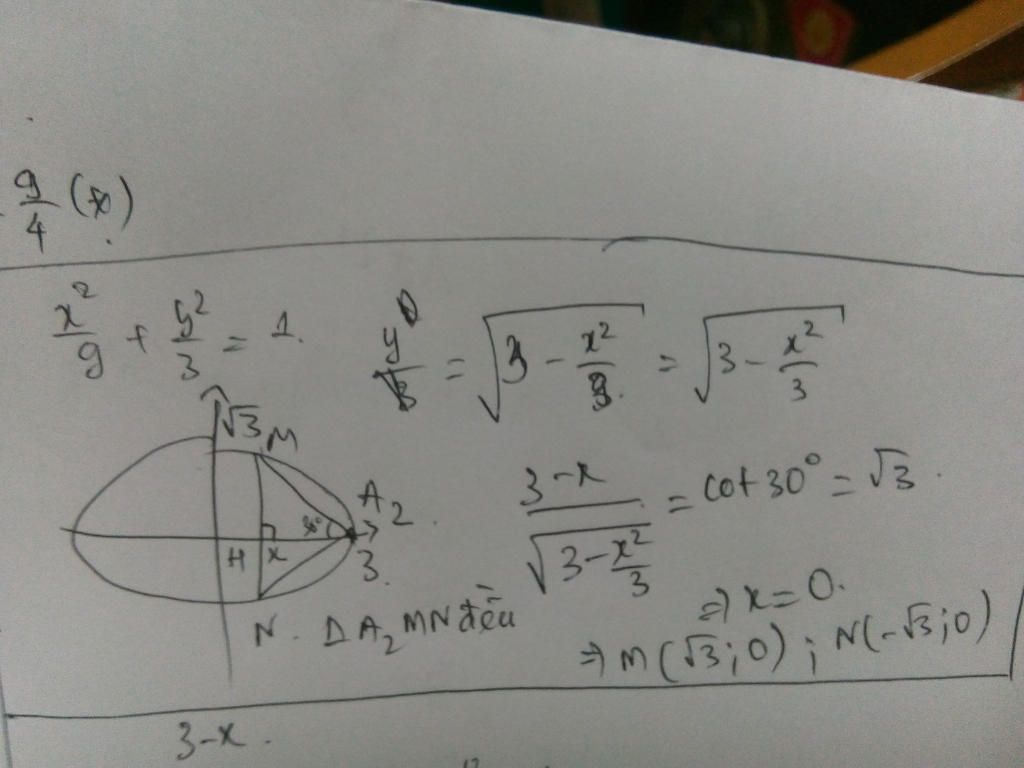 9/4 (*)
x²/9 + y²/3 = 1.
y = √(3 - x²/3) = √(3 - x²/3)
√3 M
A₂
30°
H x 3.
N. Δ A₂MN đều
(3-x)/√(3 - x²/3) = cot 30° = √3.
⇒ x = 0.
⇒ M(√3; 0); N(-√3; 0)
3-x.